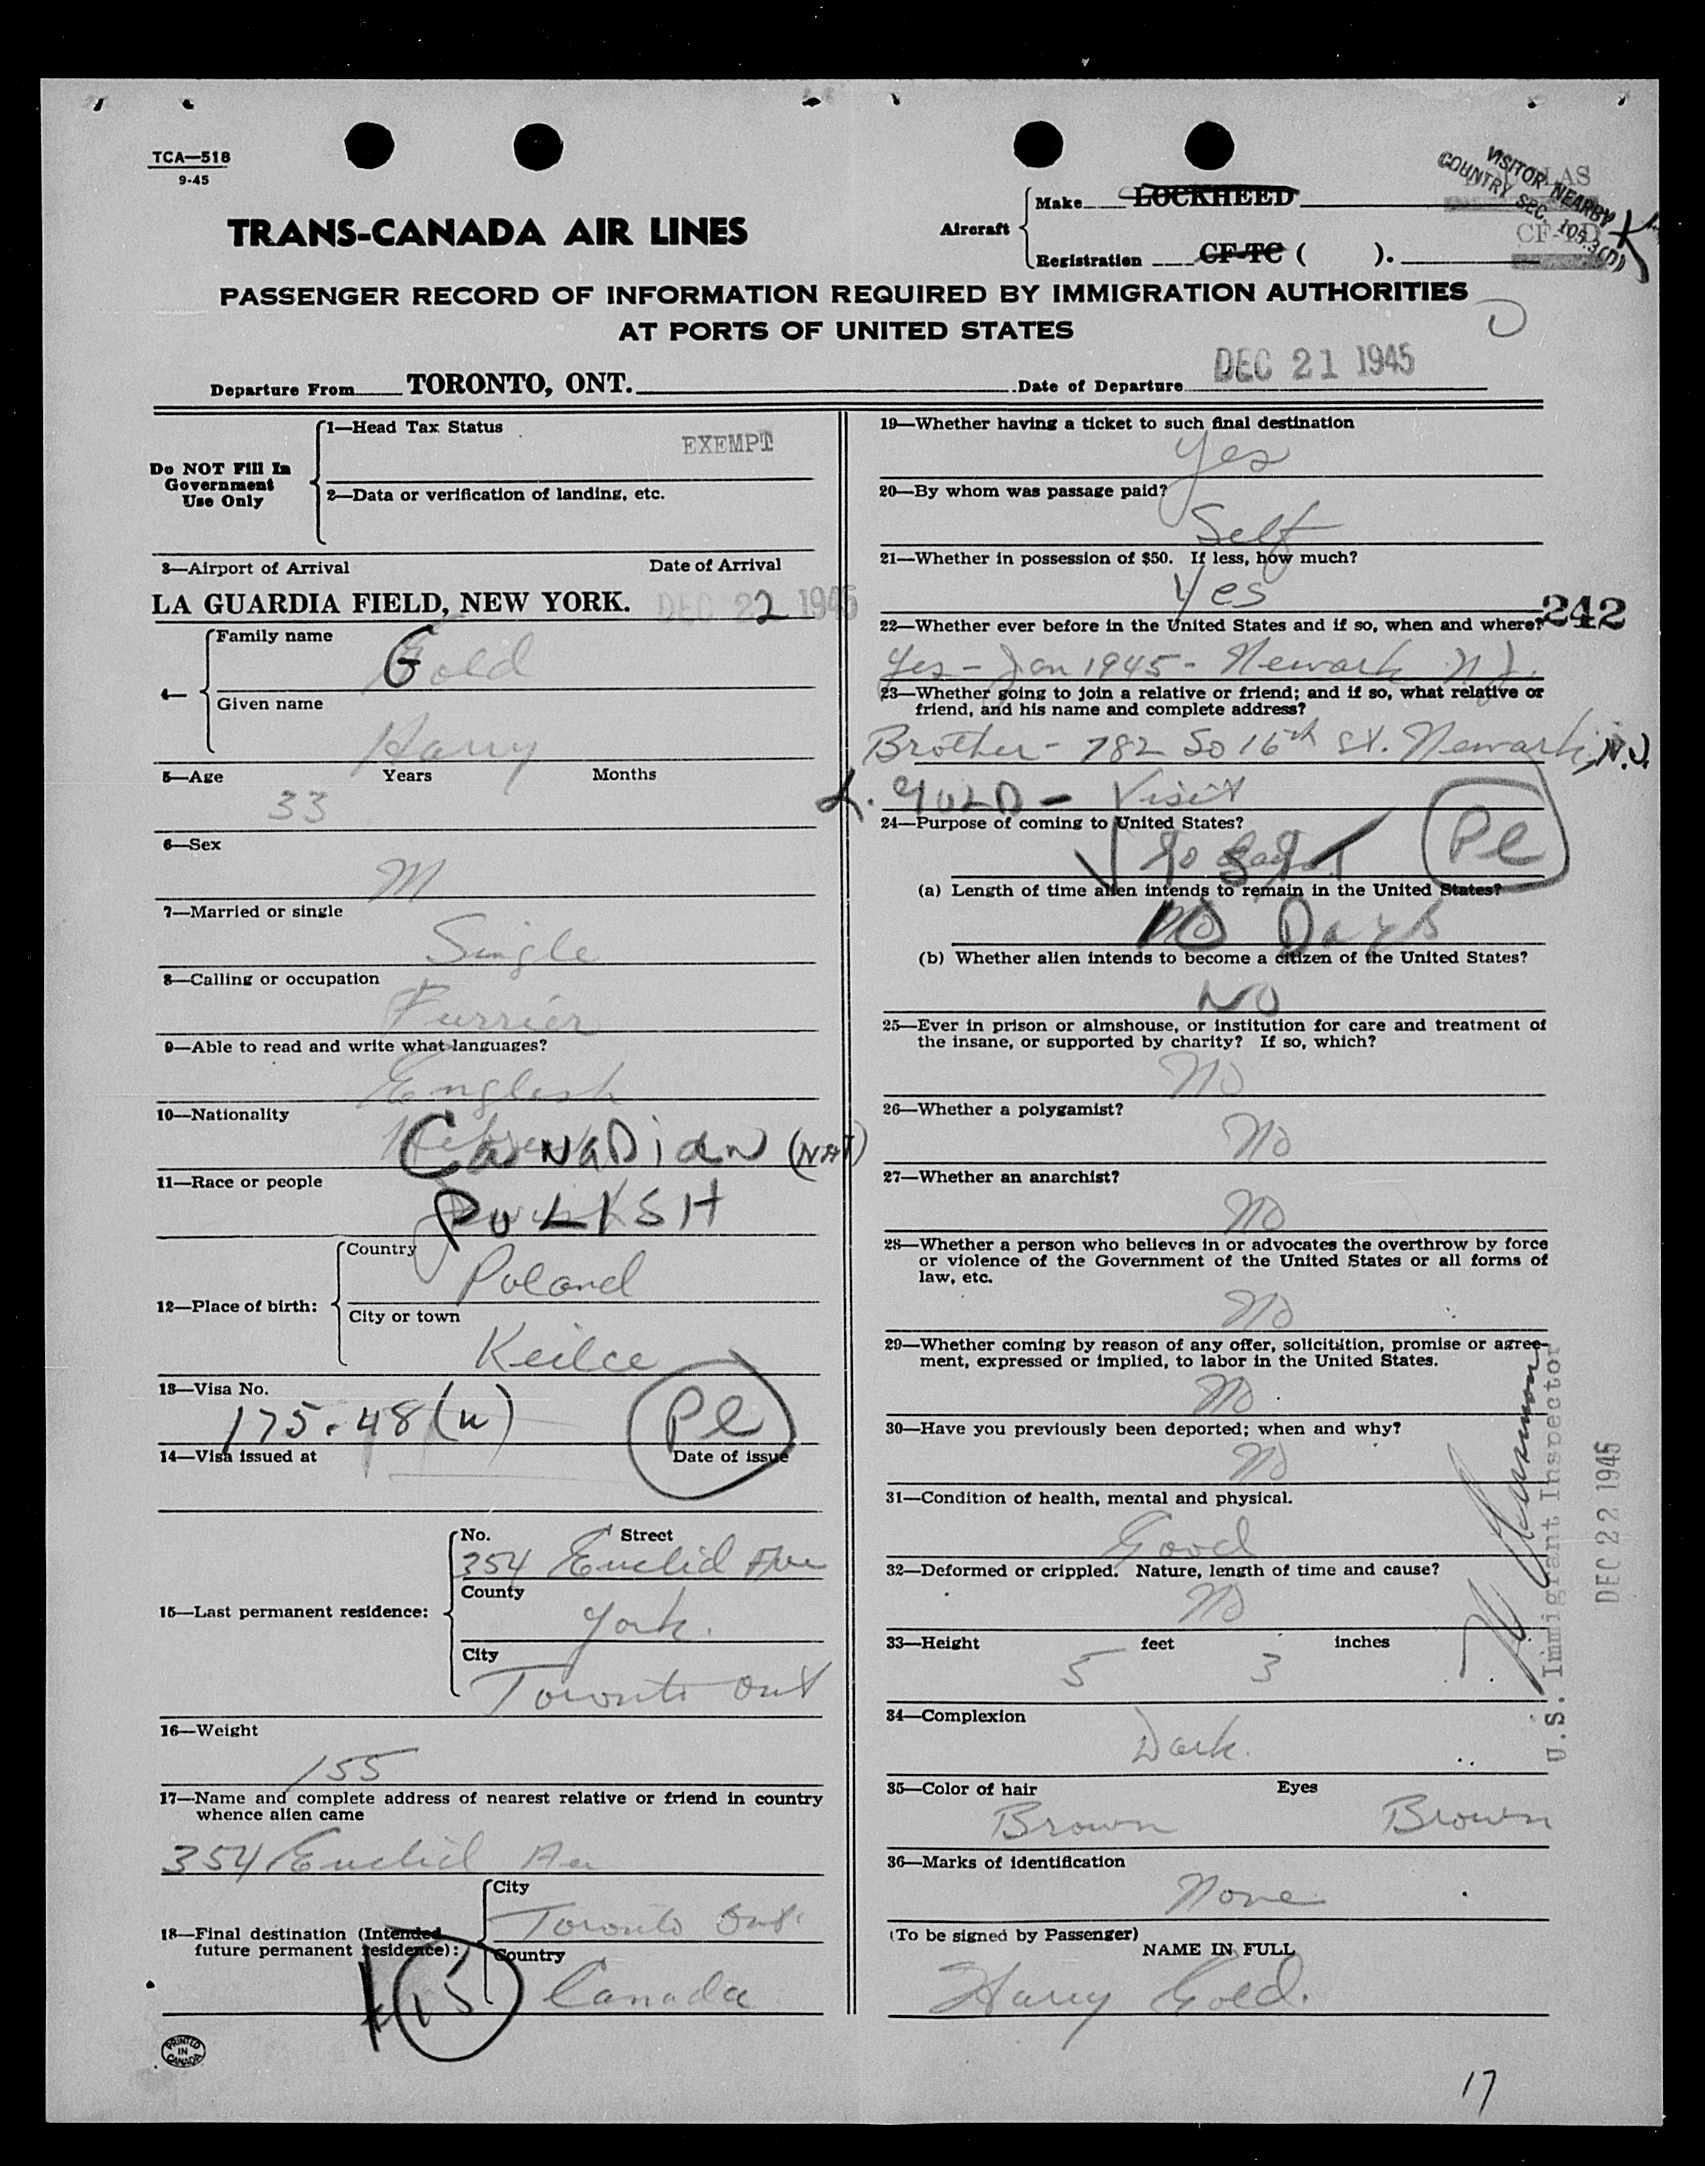 TCA—518
9-45
TRANS-CANADA AIR LINES
Aircraft
Make LOCKHEED
Registration CF-TC ( ).
VISITOR NEARBY
COUNTRY SEC. 105.3(D)
PASSENGER RECORD OF INFORMATION REQUIRED BY IMMIGRATION AUTHORITIES
AT PORTS OF UNITED STATES
Departure From TORONTO, ONT. Date of Departure DEC 21 1945
Do NOT Fill In
Government
Use Only
1—Head Tax Status
EXEMPT
2—Data or verification of landing, etc.
3—Airport of Arrival Date of Arrival
LA GUARDIA FIELD, NEW YORK. DEC 22 1945
4—
Family name
Gold
Given name
Harry
5—Age Years Months
33
6—Sex
M
7—Married or single
Single
8—Calling or occupation
Furrier
9—Able to read and write what languages?
English
10—Nationality
Canadian (NAT)
11—Race or people
POLISH
12—Place of birth:
Country
Poland
City or town
Keilce
13—Visa No.
175.48 (n)
Pl
14—Visa issued at Date of issue
15—Last permanent residence:
No. Street
354 Euclid Ave
County
York.
City
Toronto Ont
16—Weight
155
17—Name and complete address of nearest relative or friend in country
whence alien came
354 Euclid Av
18—Final destination (Intended
future permanent residence):
City
Toronto Ont.
Country
Canada
15
PRINTED
IN
CANADA
19—Whether having a ticket to such final destination
Yes
20—By whom was passage paid?
Self
21—Whether in possession of $50. If less, how much?
Yes
242
22—Whether ever before in the United States and if so, when and where?
Yes - Jan 1945 - Newark N.J.
23—Whether going to join a relative or friend; and if so, what relative or
friend, and his name and complete address?
Brother - 782 So 16th St. Newark, N.J.
L. GOLD - Visit
24—Purpose of coming to United States?
Pl
(a) Length of time alien intends to remain in the United States?
10 Days
(b) Whether alien intends to become a citizen of the United States?
NO
25—Ever in prison or almshouse, or institution for care and treatment of
the insane, or supported by charity? If so, which?
No
26—Whether a polygamist?
No
27—Whether an anarchist?
No
28—Whether a person who believes in or advocates the overthrow by force
or violence of the Government of the United States or all forms of
law, etc.
No
29—Whether coming by reason of any offer, solicitation, promise or agree-
ment, expressed or implied, to labor in the United States.
No
30—Have you previously been deported; when and why?
No
31—Condition of health, mental and physical.
Good
32—Deformed or crippled. Nature, length of time and cause?
No
33—Height feet inches
5 3
34—Complexion
Dark.
35—Color of hair Eyes
Brown Brown
36—Marks of identification
None
(To be signed by Passenger)
NAME IN FULL
Harry Gold.
U.S. Immigrant Inspector
DEC 22 1945
17